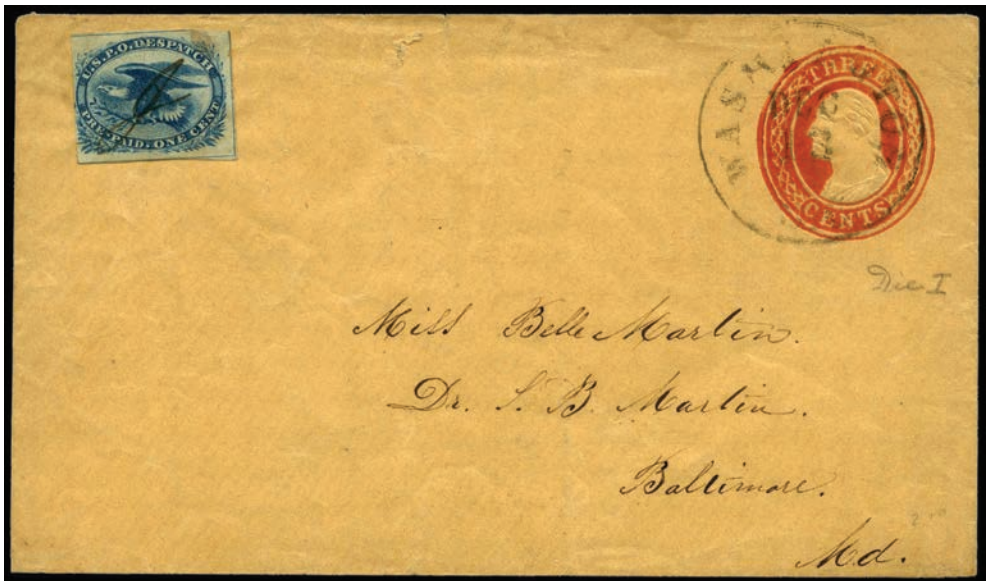 U.S.P.O. DESPATCH
PRE-PAID: ONE CENT
WASHINGTON
DEC
THREE
CENTS
Die I
Miss Belle Martin.
Dr. S. B. Martin.
Baltimore.
Md.